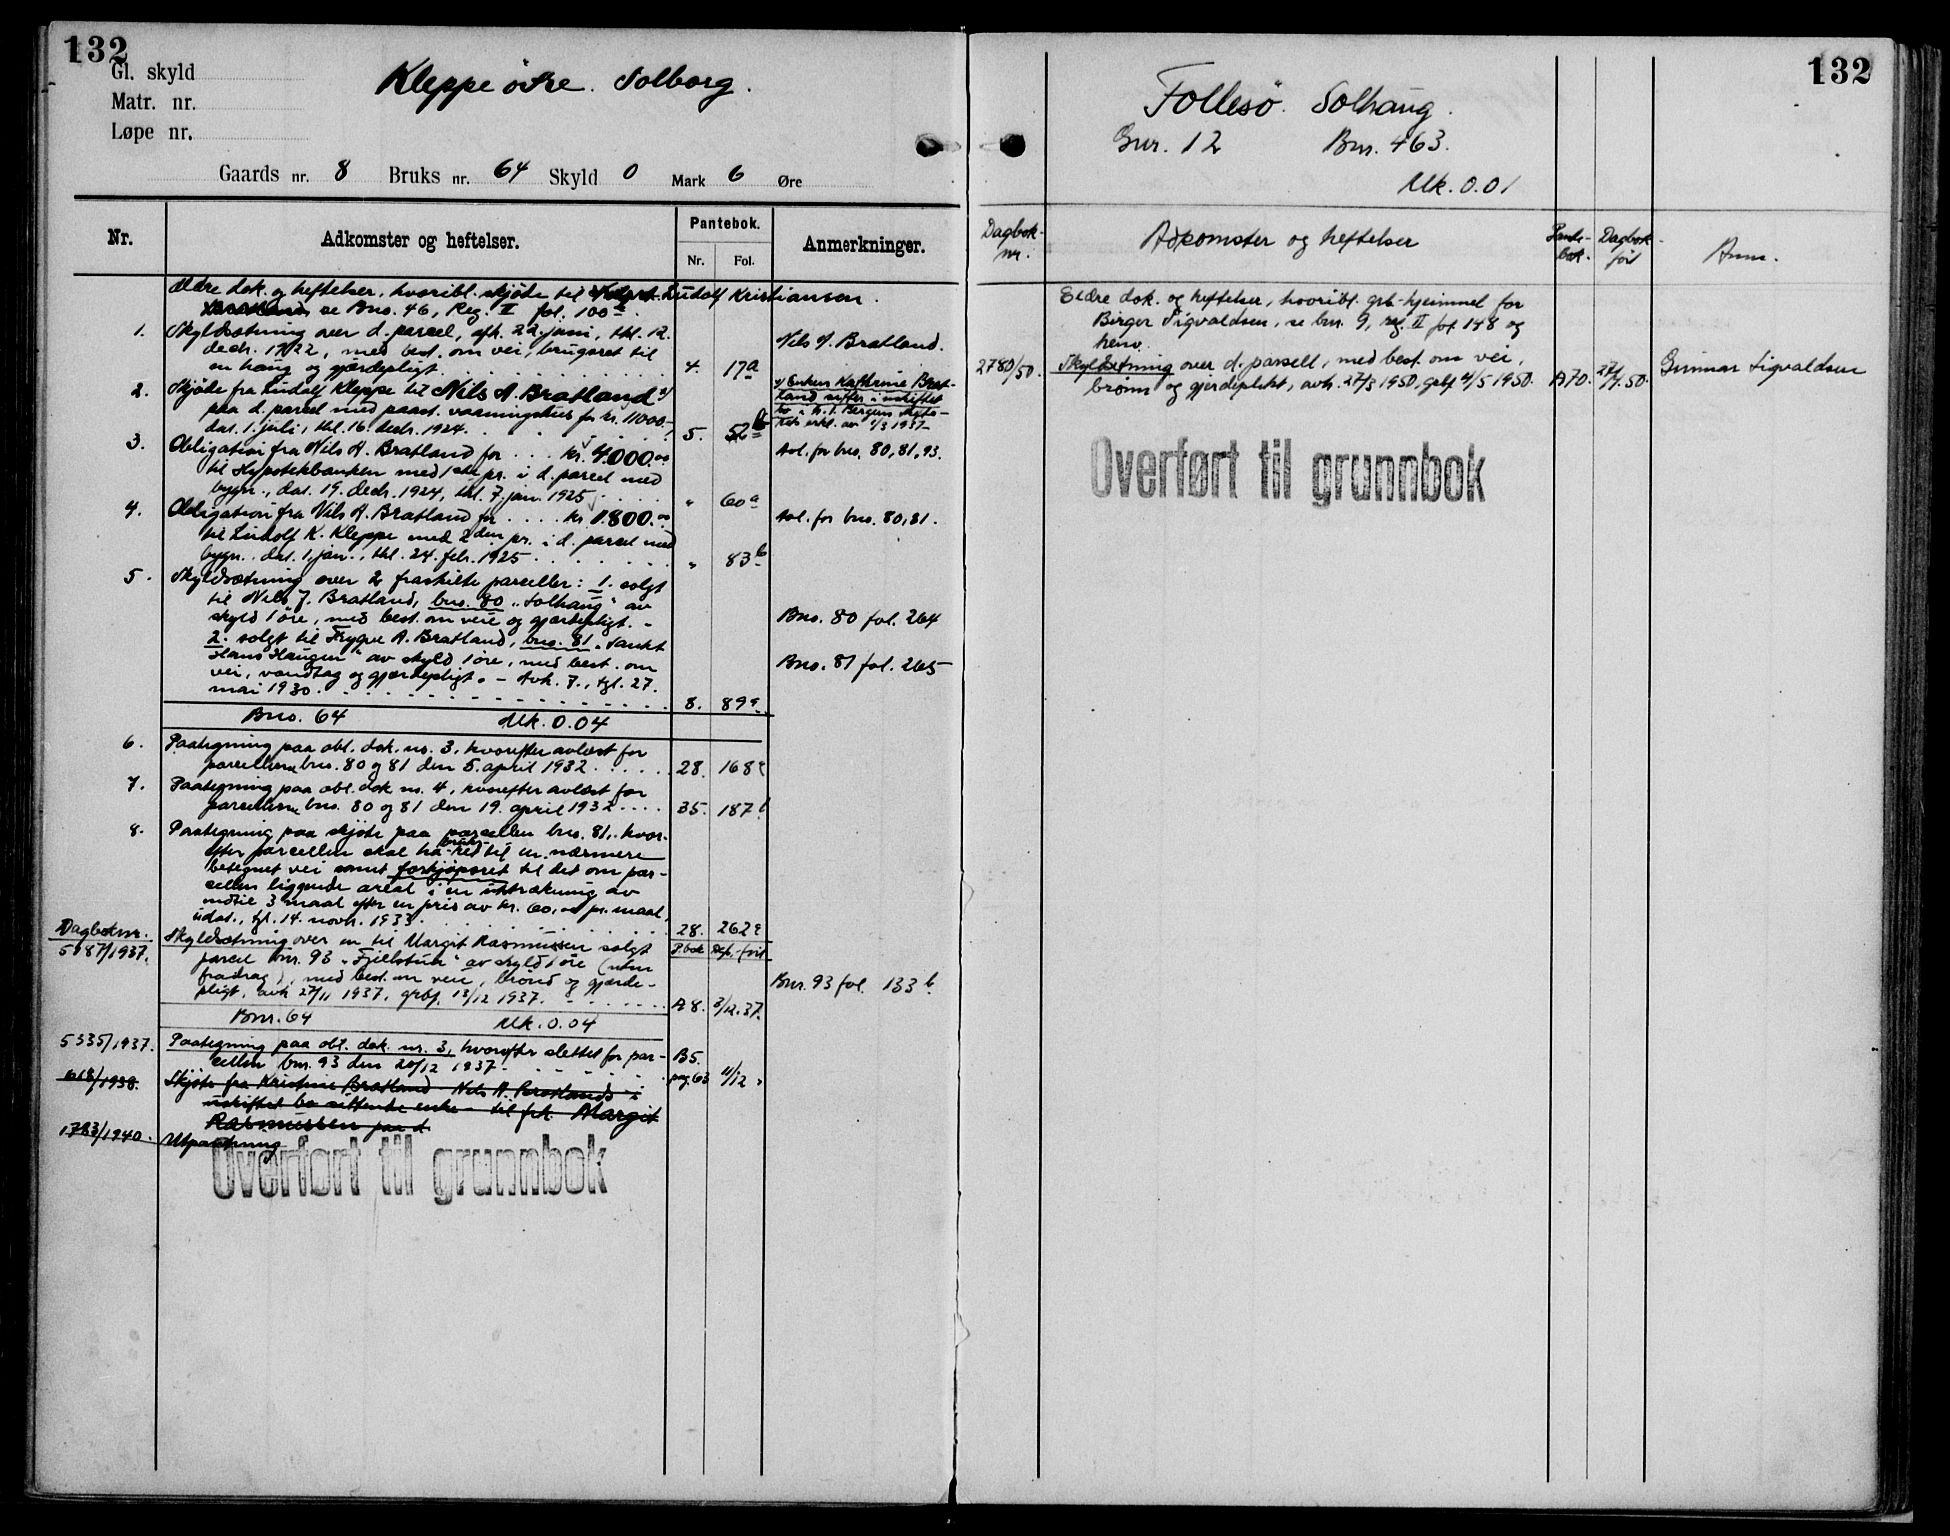 132
Gl. skyld
Matr. nr.
Løpe nr.
Kleppe östre. Solborg.
Gaards nr. 8 Bruks nr. 64 Skyld 0 Mark 6 Øre
Nr.
Adkomster og heftelser.
Pantebok.
Nr. Fol.
Anmerkninger.
Ældre dok. og heftelser, hvoribl. skjöte til Ludolf Kristiansen.
se Bno. 46, Reg. II fol. 100a.
1. Skyldsætning over d. parcel, afh. 22. juni, thl. 12.
decbr. 1922, med best. om vei, brugsret til
en haug og gjærdepligt. 4. 17a
Nils A. Bratland.
2. Skjöte fra Ludolf Kleppe til Nils A. Bratland x)
paa d. parcel med paast. vaaningshus for kr. 11000.-,
dat. 1. juli, thl. 16. decbr. 1924. 5. 52b
x) Enken Kathrine Brat-
land sitter i uskiftet
bo i h. t. Bergens skifte-
rets erkl. av 1/3 1937-
3. Obligation fra Nils A. Bratland for . . . kr. 4.000.00
til Hypotekbanken med 1ste pr. i d. parcel med
bygn., dat. 19. decbr. 1924, thl. 7. jan. 1925 " 60a
Avl. for bno. 80, 81, 93.
4. Obligation fra Nils A. Bratland for . . . . kr. 1.800.00
til Ludolf K. Kleppe med 2den pr. i d. parcel med
bygn., dat. 1. jan., thl. 24. febr. 1925 " 83b
Avl. for bno. 80, 81.
5. Skyldsætning over 2 fraskilte parceller: 1. solgt
til Nils J. Bratland, bno. 80 "Solhaug" av
skyld 1 öre, med best. om veie og gjærdepligt. -
2. solgt til Trygve A. Bratland, bno. 81 "Sankt
Hans Haugen" av skyld 1 öre, med best. om
vei, vandtag og gjærdepligt. - Avh. 7., tgl. 27.
mai 1930. 8. 89a
Bno. 80 fol. 264
Bno. 81 fol. 265
Bno. 64 Mk. 0.04
6. Paategning paa obl. dok. no. 3, hvorefter avlæst for
parcellerne bno. 80 og 81 den 5. april 1932 28. 168
7. Paategning paa obl. dok no. 4, hvorefter avlæst for
parcellerne bno. 80 og 81 den 19. april 1932 35. 187
8. Paategning paa skjöte paa parcellen bno. 81, hvor-
efter parcellen skal ha bruks-ret til en nærmere
betegnet vei samt forkjöpsret til det om par-
cellen liggende areal i en utstrækning av
indtil 3 maal efter en pris av kr. 60,00 pr. maal,
udat., tgl. 14. novbr. 1933. 28. 262
Dagboknr.
5187/1937. Skyldsætning over en til Margit Rasmussen solgt
parcel bnr. 93 "Fjellstuen" av skyld 1 öre (uten
fradrag), med best. om veie, brönd og gjærde-
pligt, avh 27/11 1937, grbf. 13/12 1937. A 8. 3/12.37.
P.bok Dgb.-fört
Bnr. 93 fol. 133b
Bnr. 64 Mk. 0.04
5335/1937. Paategning paa obl. dok. nr. 3, hvorefter slettet for par-
cellen bnr. 93 den 20/12 1937. B5. pag. 63 11/12 "
618/1938. Skjöte fra Kristine Bratland - Nils A. Bratlands i
uskiftet bo sittende enke - til frk. Margit
Rasmussen paa d.
1783/1940. Utpantning
Overført til grunnbok
132
Follesö. Solhaug.
Gnr. 12 Bnr. 463.
Mk. 0.01
Dagbok-
nr.
Adkomster og heftelser
Pante-
bok.
Dagbok-
ført
Anm.
Eldre dok. og heftelser, hvoribl. grb.-hjemmel for
Birger Sigvaldsen, se bnr. 9, reg. II fol 148 og
henv.
2780/50. Skyldsetning over d. parsell, med best. om vei,
brönn og gjerdeplikt, avh. 27/3 1950, grbf 4/5 1950. A 70. 27/4.50. Gunnar Sigvaldsen
Overført til grunnbok